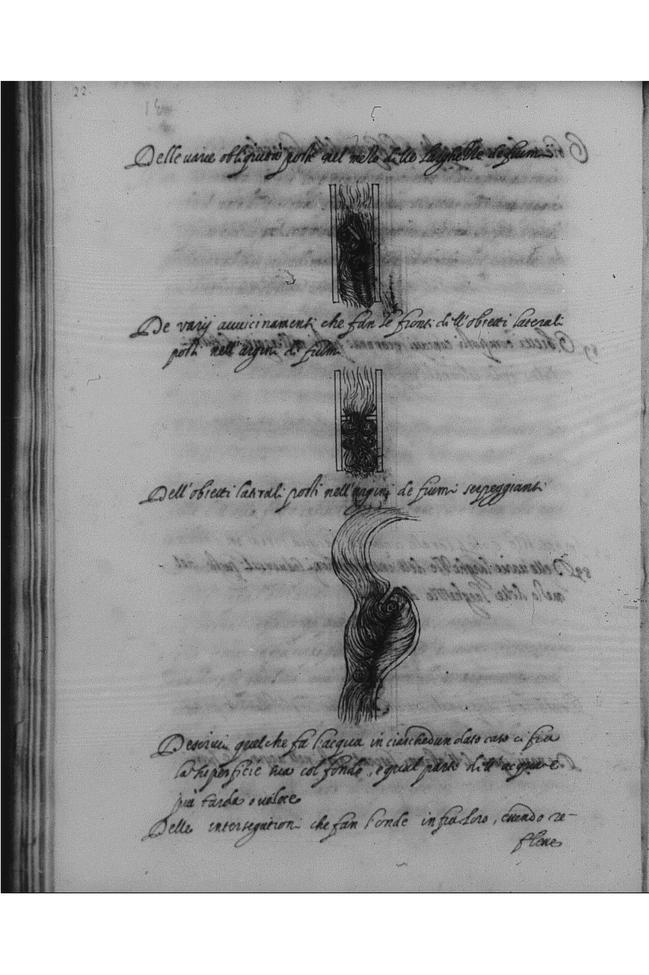 22
Delle varie obliquità posti nel mezo delle larghezze de fiumi
De varij avvicinamenti che fan le fronti dell'obietti laterali
posti nell'argini di fiumi
Dell'obietti laterali posti nell'argini de fiumi serpeggianti
Descrivi qual che fa l'acqua in ciaschedun dato caso
la superficie sua col fondo, e qual parte dell'acqua è
più tarda o veloce
Delle intersegationi che fan l'onde infra loro, essendo re-
flexe